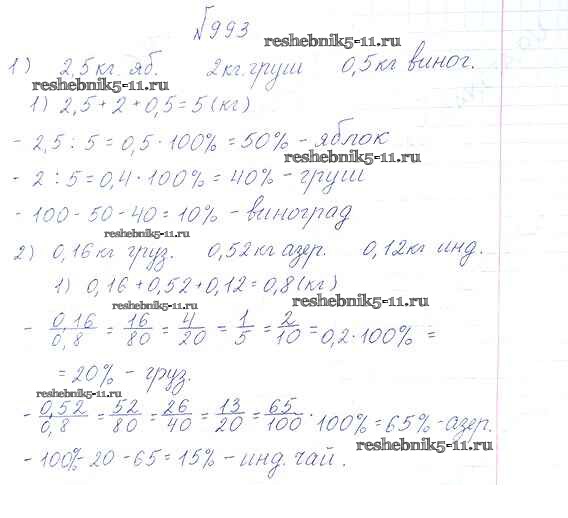 №993
reshebnik5-11.ru
1) 2,5кг. яб. 2кг.груш 0,5кг виног.
reshebnik5-11.ru
1) 2,5 + 2 + 0,5 = 5 (кг)
- 2,5 : 5 = 0,5 · 100% = 50% - яблок
reshebnik5-11.ru
- 2 : 5 = 0,4 · 100% = 40% - груш
- 100 - 50 - 40 = 10% - виноград
reshebnik5-11.ru
2) 0,16кг груз. 0,52кг азер. 0,12кг инд.
1) 0,16 + 0,52 + 0,12 = 0,8 (кг)
reshebnik5-11.ru reshebnik5-11.ru
- 0,16/0,8 = 16/80 = 4/20 = 1/5 = 2/10 = 0,2 · 100% =
= 20% - груз.
reshebnik5-11.ru
- 0,52/0,8 = 52/80 = 26/40 = 13/20 = 65/100 · 100% = 65% - азер.
reshebnik5-11.ru
- 100% - 20 - 65 = 15% - инд. чай.